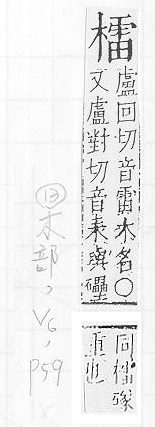 檑
盧回切音雷木名〇
又盧對切音耒與礧
同檑
重也
⑬木部, V6, P59